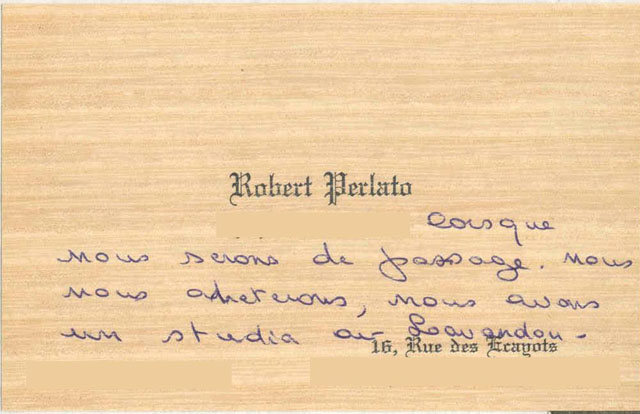 Robert Perlato
Lorsque
nous serons de passage. nous
nous arreterons, nous avons
un studio au Lavandou -
16, Rue des Ecayots